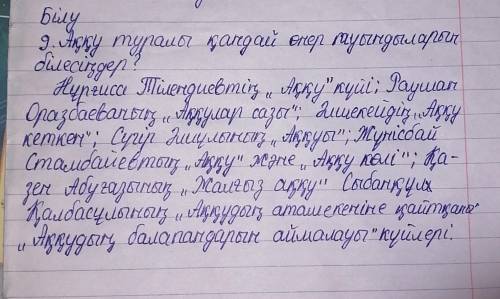 Білу
9. Аққу туралы қандай өнер туындыларын
білесіңдер?
Нұрғиса Тілендиевтің „Аққу" күйі; Раушан
Оразбаеваның „Аққулар сазы"; Әшекейдің „Аққу
кеткен"; Сүгір Әлиұлының „Аққуы"; Жүнісбай
Стамбаевтың „Аққу" және „Аққу көлі"; Қа-
зен Әбуғазының „Жалғыз аққу" Сыбанқұл
Қалбасұлының „Аққудың атамекеніне қайтқаны"
„Аққудың балапандарын аймалауы" күйлері.